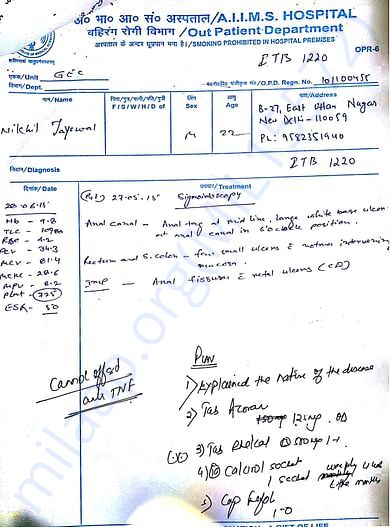 अ० भा० आ० सं० अस्पताल/A.I.I.M.S. HOSPITAL
बहिरंग रोगी विभाग/Out Patient Department
अस्पताल के अन्दर धूम्रपान मना है।/SMOKING PROHIBITED IN HOSPITAL PREMISES
OPR-6
ITB 1220
एकक/Unit GEC
विभाग/Dept.
O.P.D. Regn. No. 101100455
नाम/Name
F/S/W/H/D of
लिंग Sex
आयु Age
पता/Address
Nikhil Jayswal
M
22
B-27, East Uttam Nagar
New Delhi-110059
Ph: 9582351940
ITB 1220
निदान/Diagnosis
दिनांक/Date
उपचार/Treatment
27.05.15 Sigmoidoscopy
Hb - 9.8
TLC -
RBC - 4.2
PCV - 34.3
MCV - 81.4
MCHC - 28.6
MPV - 8.2
Plat - 725
ESR - 50
Anal canal - Anal tag at mid line, large white base ulcer
at anal canal in 5'o clock position.
Rectum and S. colon - few small ulcers & normal intervening
mucosa.
Imp - Anal fissure & rectal ulcers (CD)
Cannot afford
anti TNF
Plan
1) Explained the nature of the disease
2) Tab Azoran
125mg OD
3) Tab
4) Calcirol sachet
1 sachet weekly
5) Cap
1-0
A GIFT OF LIFE